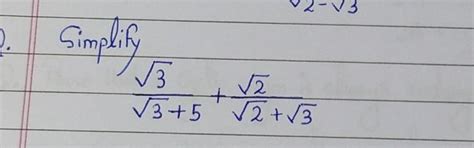 √2-√3
Simplify
√3/(√3+5) + √2/(√2+√3)